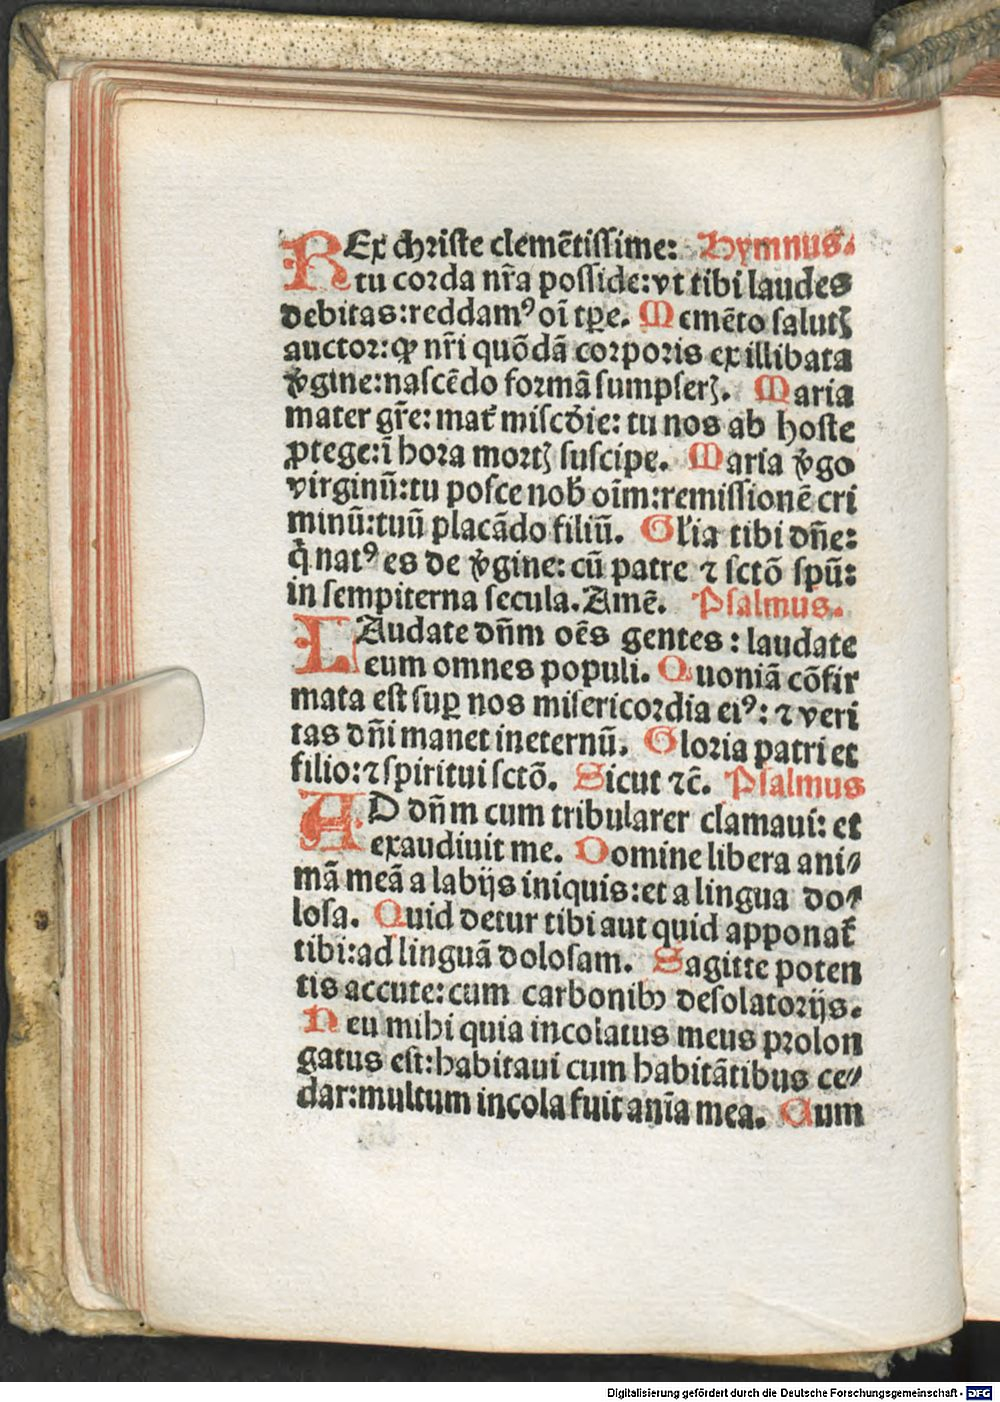 REx christe clemẽtissime: Hymnus.
tu corda nr̃a posside: vt tibi laudes
debitas: reddamꝰ oĩ tp̱e. Memẽto salutꝫ
auctor: ꝙ nr̃i quõdã corporis ex illibata
v̾gine: nascẽdo formã sumpserꝫ. Maria
mater gr̃e: mat̾ miscd̾ie: tu nos ab hoste
ꝓtege: ĩ hora mortꝫ suscipe. Maria v̾go
virginũ: tu posce nob̾ oĩm: remissionẽ cri
minũ: tuũ placãdo filiũ. Gl̾ia tibi dñe:
q̇ natꝰ es de v̾gine: cũ patre ⁊ sctõ spũ:
in sempiterna secula. Amẽ. Psalmus.
LAudate dñm oẽs gentes: laudate
eum omnes populi. Quoniã cõfir
mata est suꝑ nos misericordia eiꝰ: ⁊ veri
tas dñi manet in eternũ. Gloria patri et
filio: ⁊ spiritui sctõ. Sicut ⁊c̃. Psalmus
AD dñm cum tribularer clamaui: et
exaudiuit me. Domine libera ani⸗
mã meã a labijs iniquis: et a lingua do⸗
losa. Quid detur tibi aut quid apponat̾
tibi: ad linguã dolosam. Sagitte poten
tis accute: cum carbonibꝫ desolatorijs.
Heu mihi quia incolatus meus prolon
gatus est: habitaui cum habitãtibus ce⸗
dar: multum incola fuit anĩa mea. Cum
Digitalisierung gefördert durch die Deutsche Forschungsgemeinschaft - DFG